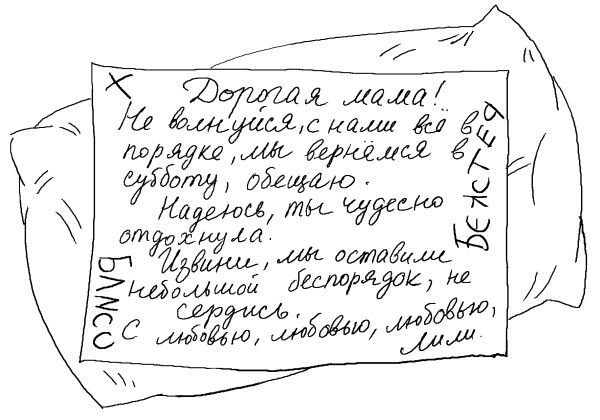 Х
Дорогая мама!
Не волнуйся, с нами всё в
порядке, мы вернёмся в
субботу, обещаю.
Надеюсь, ты чудесно
отдохнула.
Извини, мы оставили
небольшой беспорядок, не
сердись.
С любовью, любовью, любовью,
Лили.